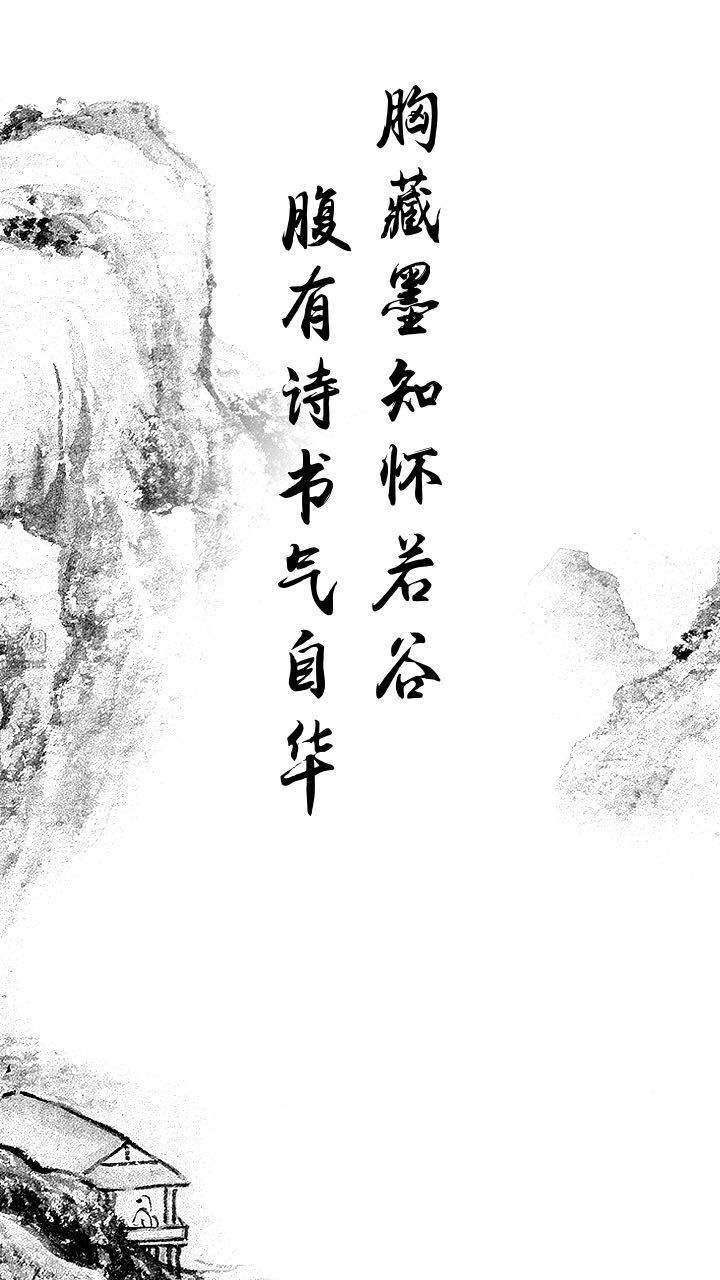 胸藏墨知怀若谷
腹有诗书气自华